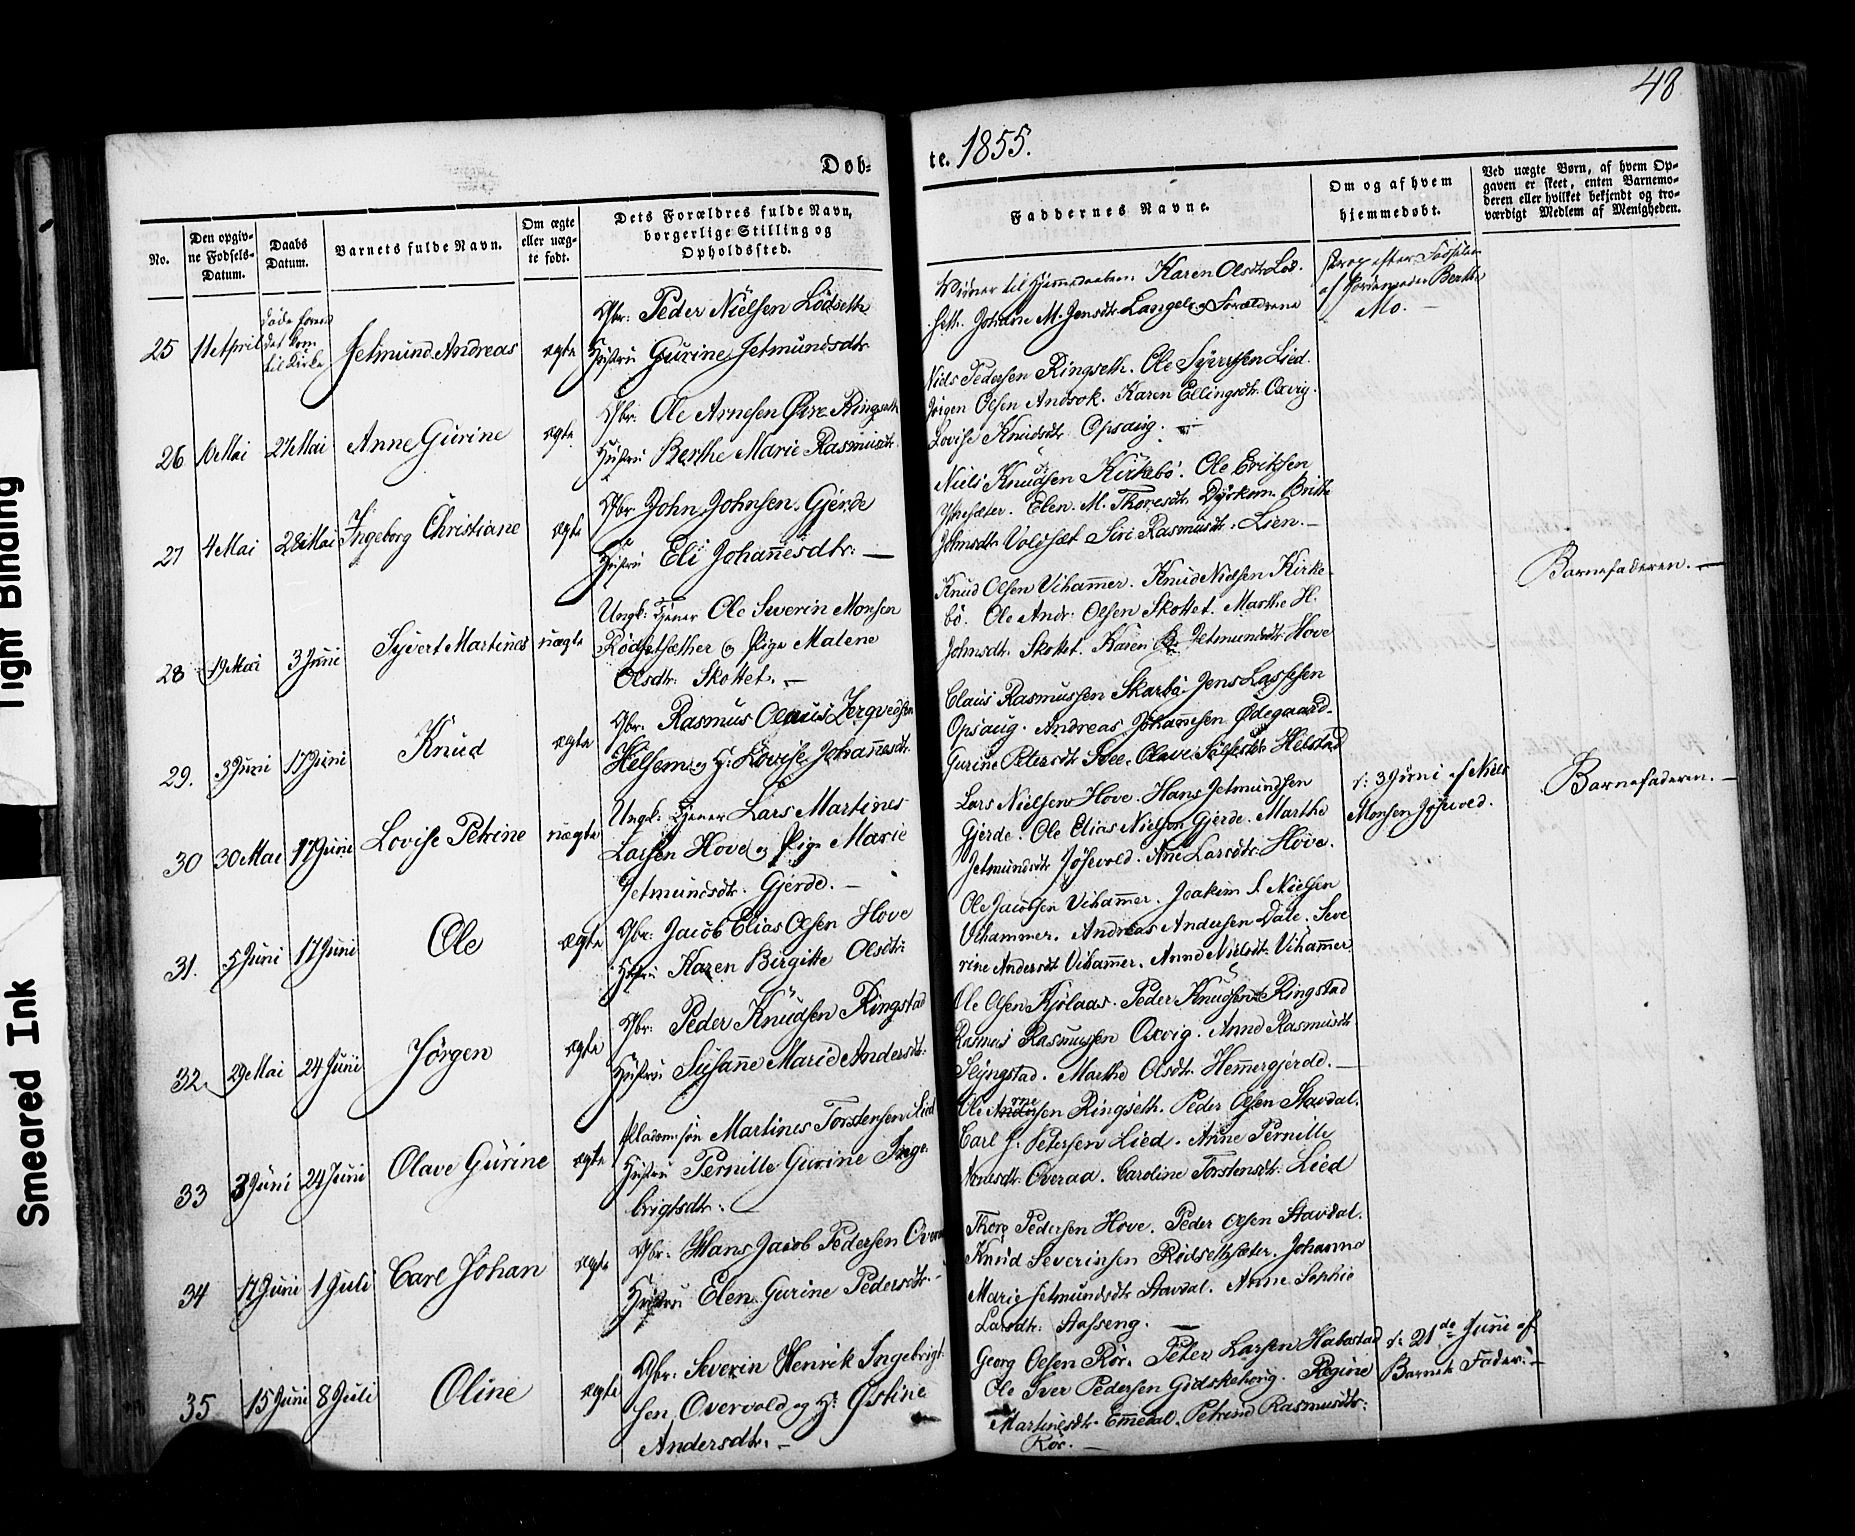 48
Døb-
te. 1855.
No.
Den opgiv-
ne Fødsels-
Datum.
Daabs
Datum.
Barnets fulde Navn.
Om ægte
eller uæg-
te født.
Dets Forældres fulde Navn,
borgerlige Stilling og
Opholdssted.
Faddernes Navne.
Om og af hvem
hjemmedøbt.
Ved uægte Børn, af hvem Op-
gaven er skeet, enten Barnemo-
deren eller hvilket bekjendt og tro-
værdigt Medlem af Menigheden.
25 11te April
døde forend
det kom
til Kirke
Jetmund Andreas
ægte
Gbr: Peder Nielsen Lødseth
Hustru Gurine Jetmundsdtr
Vidner til Hjemmedaaben: Karen Olsdtr Lød-
seth. Johane M. Jensdtr Langelo og Forældrene
strax efter Fødselen
af Jordemoder Berthe
Mo. —
26 6 Mai 27 Mai Anne Gurine ægte
Gbr: Ole Arnesen Øvre Ringseth
Hustru Berthe Marie Rasmusdtr
Niels Pedersen Ringseth. Ole Syvertsen Lied.
Jørgen Olsen Andsok. Karen Ellingsdtr Oxvig.
Lovise Knudsdtr Opsaug. —
27 4 Mai 28 Mai Ingeborg Christiane ægte
Gbr John Johnsen Gjerde
Hustru Eli Johannesdtr: —
Niels Knudsen Kirkebø. Ole Eriksen
Elen M. Thoresdtr. Dyrkorn. Brithe
Johnsdtr Voldsæt Siri Rasmusdtr. Lien. —
28 19 Mai 3 Juni Syvert Martinus uægte
Ungk: Tjener Ole Severin Monsen
Rødsethsæther og Pige Malene
Olsdtr. Skottet. —
Knud Olsen Vihammer. Knud Nielsen Kirke-
bø. Ole Andr. Olsen Skottet. Marthe H.
Johnsdtr. Skottet. Karen Jetmundsdtr Hove
Barnefaderen. —
29. 3 Juni 17 Juni Knud ægte
Gbr. Rasmus Olaus
Helsem og H: Lovise Johannesdtr
Claus Rasmussen Skarbø. Jens Lassesen
Opsaug. Andreas Johannesen Ødegaard.
Gurine Petersdtr Svee. Olave Helstad
30 30 Mai 17 Juni Lovise Petrine uægte
Ungk: Tjener Lars Martinus
Larsen Hove og Pige Marie
Jetmundsdtr. Gjerde. —
Lars Nielsen Hove. Hans Jetmundsen
Gjerde. Ole Elias Nielsen Gjerde. Marthe
Jetmundsdtr Jøsevold. Ane Larsdtr. Hove.
d: 3 Juni af Niels
Monsen Jøsevold.
Barnefaderen. —
31. 5 Juni 17 Juni Ole ægte
Gbr: Jacob Elias Olsen Hove
Hustru Karen Birgitte Olsdtr:
Ole Jacobsen Vihammer. Joakim S. Nielsen
Vihammer. Andreas Andersen Dale. Seve
rine Andersdt Vihammer. Anne Nielsdt. Vihammer
32. 29 Mai 24 Juni Jørgen ægte
Gbr: Peder Knudsen Ringstad
Hustru Susanne Marie Andersdtr:
Ole Olsen Kjølaas. Peder Knudsen Ringstad
Rasmus Rasmussen Oxvig. Anne Rasmusdtr
Slyngstad. Marthe Olsdtr. Hemmergjerde. —
33 3 Juni 24 Juni Olave Gurine ægte
Martinus Torstensen Lied
Hustru Pernille Gurine Inge-
brigtsdtr: —
Ole Arnesen Ringseth. Peder Olsen Stavdal.
Carl J. Petersen Lied. Anne Pernille
Arnesdtr. Overaa. Caroline Torstensdt: Lied
34 17 Juni 1 Juli Carl Johan ægte
Gbr: Hans Jacob Pedersen Overaa
Hustru Elen Gurine Pedersdtr. —
Thore Pedersen Hove. Peder Olsen Stavdal.
Knud Severinsen Rødsethsæter. Johanne
Marie Jetmundsdtr Stavdal. Anne Sophie
Larsdtr: Stafseng. —
35 15 Juni 8 Juli Oline ægte
Gbr: Severin Henrik Ingebrigt-
sen Overvold og H: Østine
Andersdtr. —
Georg Olsen Rør. Peter Larsen Habostad
Ole Iver Pedersen Gudskehoug. Regine
Martinusdtr Emmedal. Petrine Rasmusdtr:
Rør. —
d: 21de Juni af
Barnets Fader. —
Tight Binding
Smeared Ink